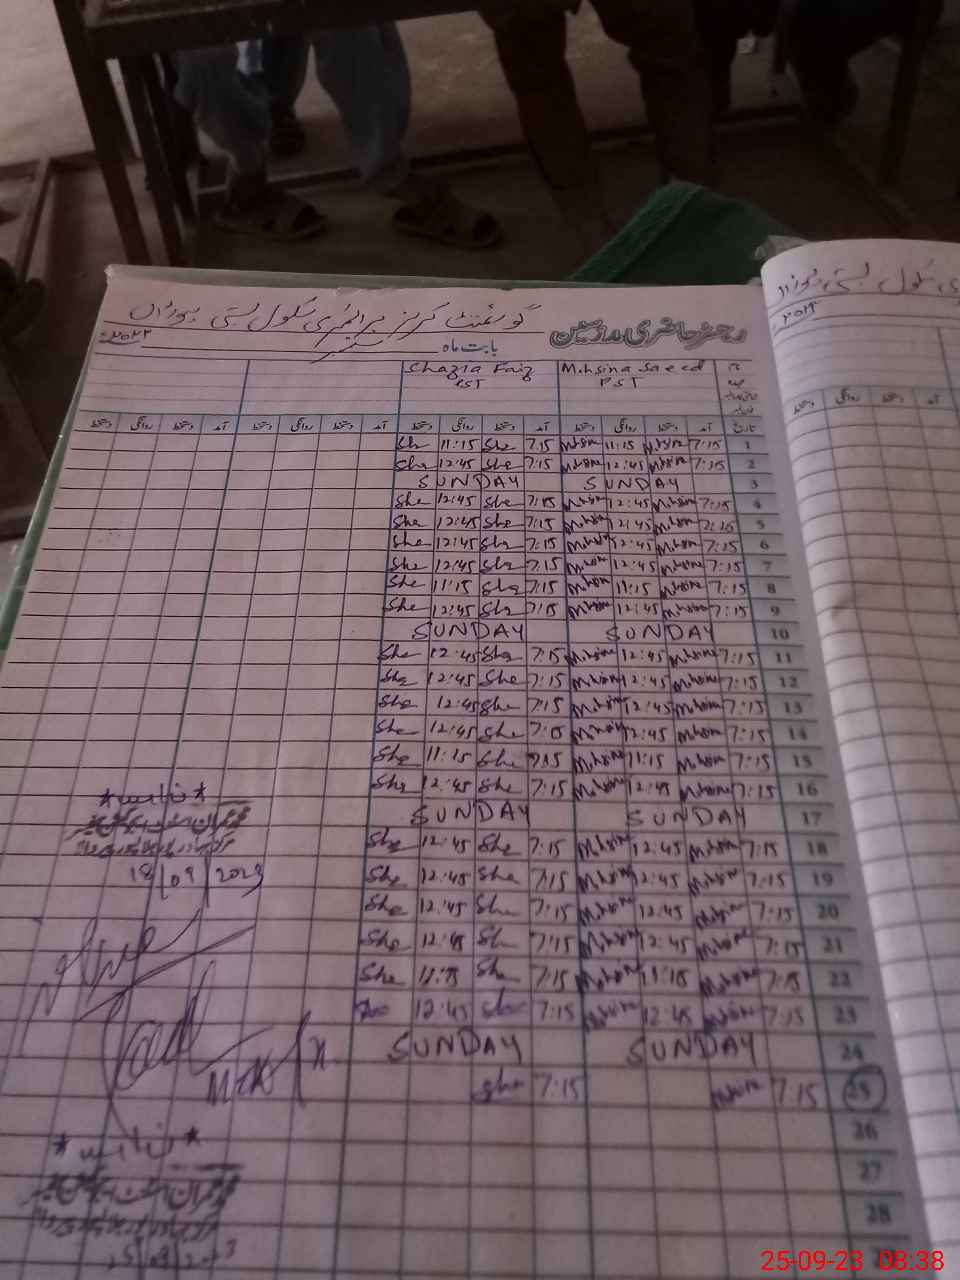 رجسٹر حاضری مدرسین گورنمنٹ گرلز پرائمری سکول بستی
بابت ماہ ستمبر ۲۰۲۳
نام Mohsina Saeed Shazia Faiz
عہدہ PST PST
تاریخ آمد دستخط روانگی دستخط آمد دستخط روانگی دستخط آمد دستخط روانگی دستخط آمد دستخط روانگی دستخط
She 11:15 She 7:15 Mohsina 11:15 Mohsina 7:15 1
She 12:45 She 7:15 Mohsina 12:45 Mohsina 7:15 2
SUNDAY SUNDAY 3
She 12:45 She 7:15 Mohsina 12:45 Mohsina 7:15 4
She 12:45 She 7:15 Mohsina 12:45 Mohsina 7:15 5
She 12:45 She 7:15 Mohsina 12:45 Mohsina 7:15 6
She 12:45 She 7:15 Mohsina 12:45 Mohsina 7:15 7
She 11:15 She 7:15 Mohsina 11:15 Mohsina 7:15 8
She 12:45 She 7:15 Mohsina 12:45 Mohsina 7:15 9
SUNDAY SUNDAY 10
She 12:45 She 7:15 Mohsina 12:45 Mohsina 7:15 11
She 12:45 She 7:15 Mohsina 12:45 Mohsina 7:15 12
She 12:45 She 7:15 Mohsina 12:45 Mohsina 7:15 13
She 12:45 She 7:15 Mohsina 12:45 Mohsina 7:15 14
She 11:15 She 7:15 Mohsina 11:15 Mohsina 7:15 15
She 12:45 She 7:15 Mohsina 12:45 Mohsina 7:15 16
SUNDAY SUNDAY 17
She 12:45 She 7:15 Mohsina 12:45 Mohsina 7:15 18
She 12:45 She 7:15 Mohsina 12:45 Mohsina 7:15 19
She 12:45 She 7:15 Mohsina 12:45 Mohsina 7:15 20
She 12:45 She 7:15 Mohsina 12:45 Mohsina 7:15 21
She 11:15 She 7:15 Mohsina 11:15 Mohsina 7:15 22
She 12:45 She 7:15 Mohsina 12:45 Mohsina 7:15 23
SUNDAY SUNDAY 24
She 7:15 Mohsina 7:15 25
26
27
28
18/09/2023
25/09/2023
سکول بستی
۲۰۲۳
دستخط روانگی دستخط آمد
25-09-23 08:38